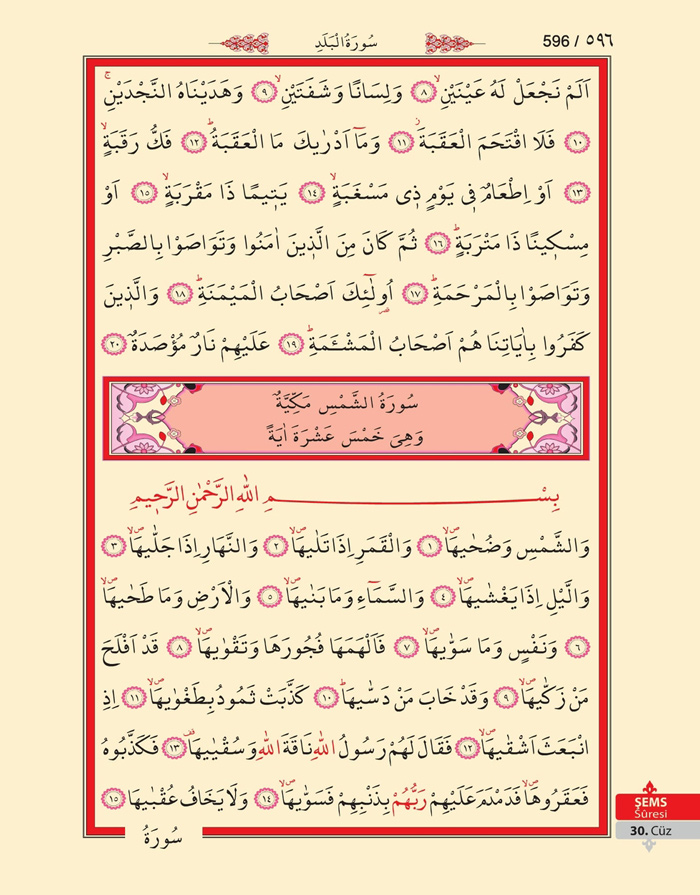 سُورَةُ الْبَلَدِ
596 / ٥٩٦
اَلَمْ نَجْعَلْ لَهُ عَيْنَيْنِۙ ٨ وَلِسَانًا وَشَفَتَيْنِۙ ٩ وَهَدَيْنَاهُ النَّجْدَيْنِۚ
١٠ فَلَا اقْتَحَمَ الْعَقَبَةَۘ ١١ وَمَٓا اَدْرٰيكَ مَا الْعَقَبَةُۜ ١٢ فَكُّ رَقَبَةٍۙ
١٣ اَوْ اِطْعَامٌ ف۪ي يَوْمٍ ذ۪ي مَسْغَبَةٍۙ ١٤ يَت۪يمًا ذَا مَقْرَبَةٍۙ ١٥ اَوْ
مِسْك۪ينًا ذَا مَتْرَبَةٍۜ ١٦ ثُمَّ كَانَ مِنَ الَّذ۪ينَ اٰمَنُوا وَتَوَاصَوْا بِالصَّبْرِ
وَتَوَاصَوْا بِالْمَرْحَمَةِۜ ١٧ اُو۬لٰٓئِكَ اَصْحَابُ الْمَيْمَنَةِۜ ١٨ وَالَّذ۪ينَ
كَفَرُوا بِاٰيَاتِنَا هُمْ اَصْحَابُ الْمَشْـَٔمَةِۜ ١٩ عَلَيْهِمْ نَارٌ مُؤْصَدَةٌ ٢٠
سُورَةُ الشَّمْسِ مَكِّيَّةٌ
وَهِيَ خَمْسَ عَشْرَةَ اٰيَةً
بِسْمِ اللّٰهِ الرَّحْمٰنِ الرَّح۪يمِ
وَالشَّمْسِ وَضُحٰيهَاۙۖ ١ وَالْقَمَرِ اِذَا تَلٰيهَاۙۖ ٢ وَالنَّهَارِ اِذَا جَلّٰيهَاۙۖ ٣
وَالَّيْلِ اِذَا يَغْشٰيهَاۙۖ ٤ وَالسَّمَٓاءِ وَمَا بَنٰيهَاۙۖ ٥ وَالْاَرْضِ وَمَا طَحٰيهَاۙۖ
٦ وَنَفْسٍ وَمَا سَوّٰيهَاۙۖ ٧ فَاَلْهَمَهَا فُجُورَهَا وَتَقْوٰيهَاۙۖ ٨ قَدْ اَفْلَحَ
مَنْ زَكّٰيهَاۙۖ ٩ وَقَدْ خَابَ مَنْ دَسّٰيهَاۜ ١٠ كَذَّبَتْ ثَمُودُ بِطَغْوٰيهَاۙۖ ١١ اِذِ
انْبَعَثَ اَشْقٰيهَاۙۖ ١٢ فَقَالَ لَهُمْ رَسُولُ اللّٰهِ نَاقَةَ اللّٰهِ وَسُقْيٰيهَاۜ ١٣ فَكَذَّبُوهُ
فَعَقَرُوهَاۙۖ فَدَمْدَمَ عَلَيْهِمْ رَبُّهُمْ بِذَنْبِهِمْ فَسَوّٰيهَاۙۖ ١٤ وَلَا يَخَافُ عُقْبٰيهَا ١٥
سُورَةُ
ŞEMS
Sûresi
30. Cüz